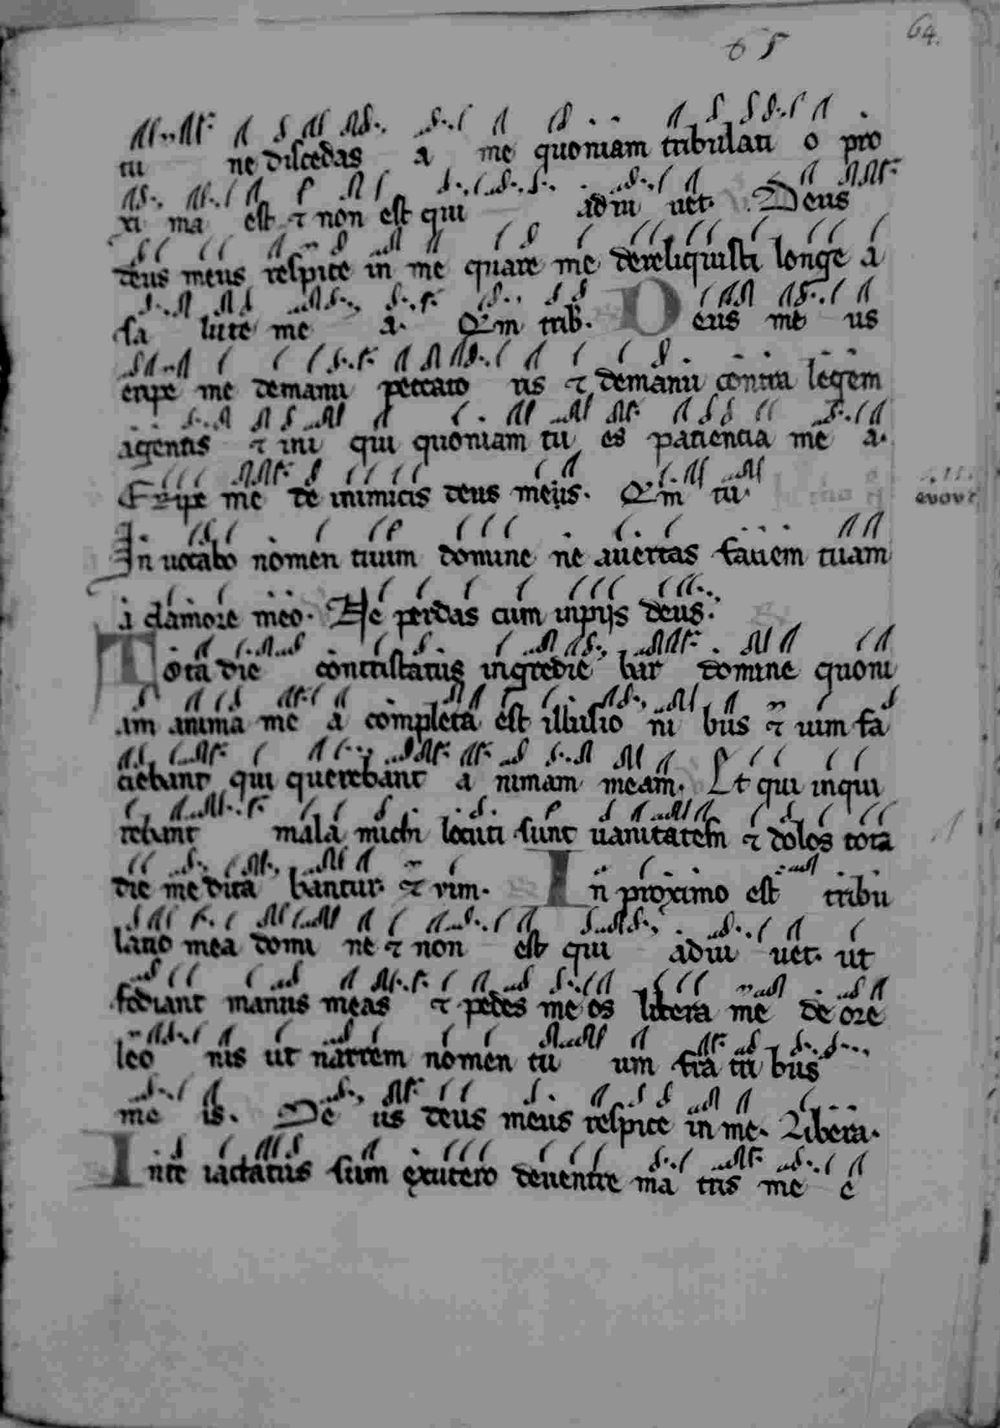 65 64.
tu ne discedas a me quoniam tribulati o pro
xi ma est ⁊ non est qui adiu uet. Deus
deus meus respice in me quare me dereliquisti longe a
sa lute me a. Qm trib. Deus me us
eripe me demanu peccato ris ⁊ demanu contra legem
agentis ⁊ ini qui quoniam tu es patiencia me a.
Eripe me de inimicis deus meus. Qm tu.
euouae
In uocabo nomen tuum domine ne auertas faciem tuam
a clamore meo. Ne perdas cum inpijs deus.
Tota die contristatus ingredie bar domine quoni
am anima me a completa est illusio ni bus ⁊ uim fa
ciebant qui querebant a nimam meam. Et qui inqui
rebant mala michi locuti sunt uanitatem ⁊ dolos tota
die me dita bantur. et vim. In proximo est tribu
latio mea domi ne ⁊ non est qui adiu uet. ut
fodiant manus meas ⁊ pedes me os libera me de ore
leo nis ut narrem nomen tu um fra tri bus
me is. De us deus meus respice in me. Libera.
Inte iactatus sum ex utero deuentre ma tris me e